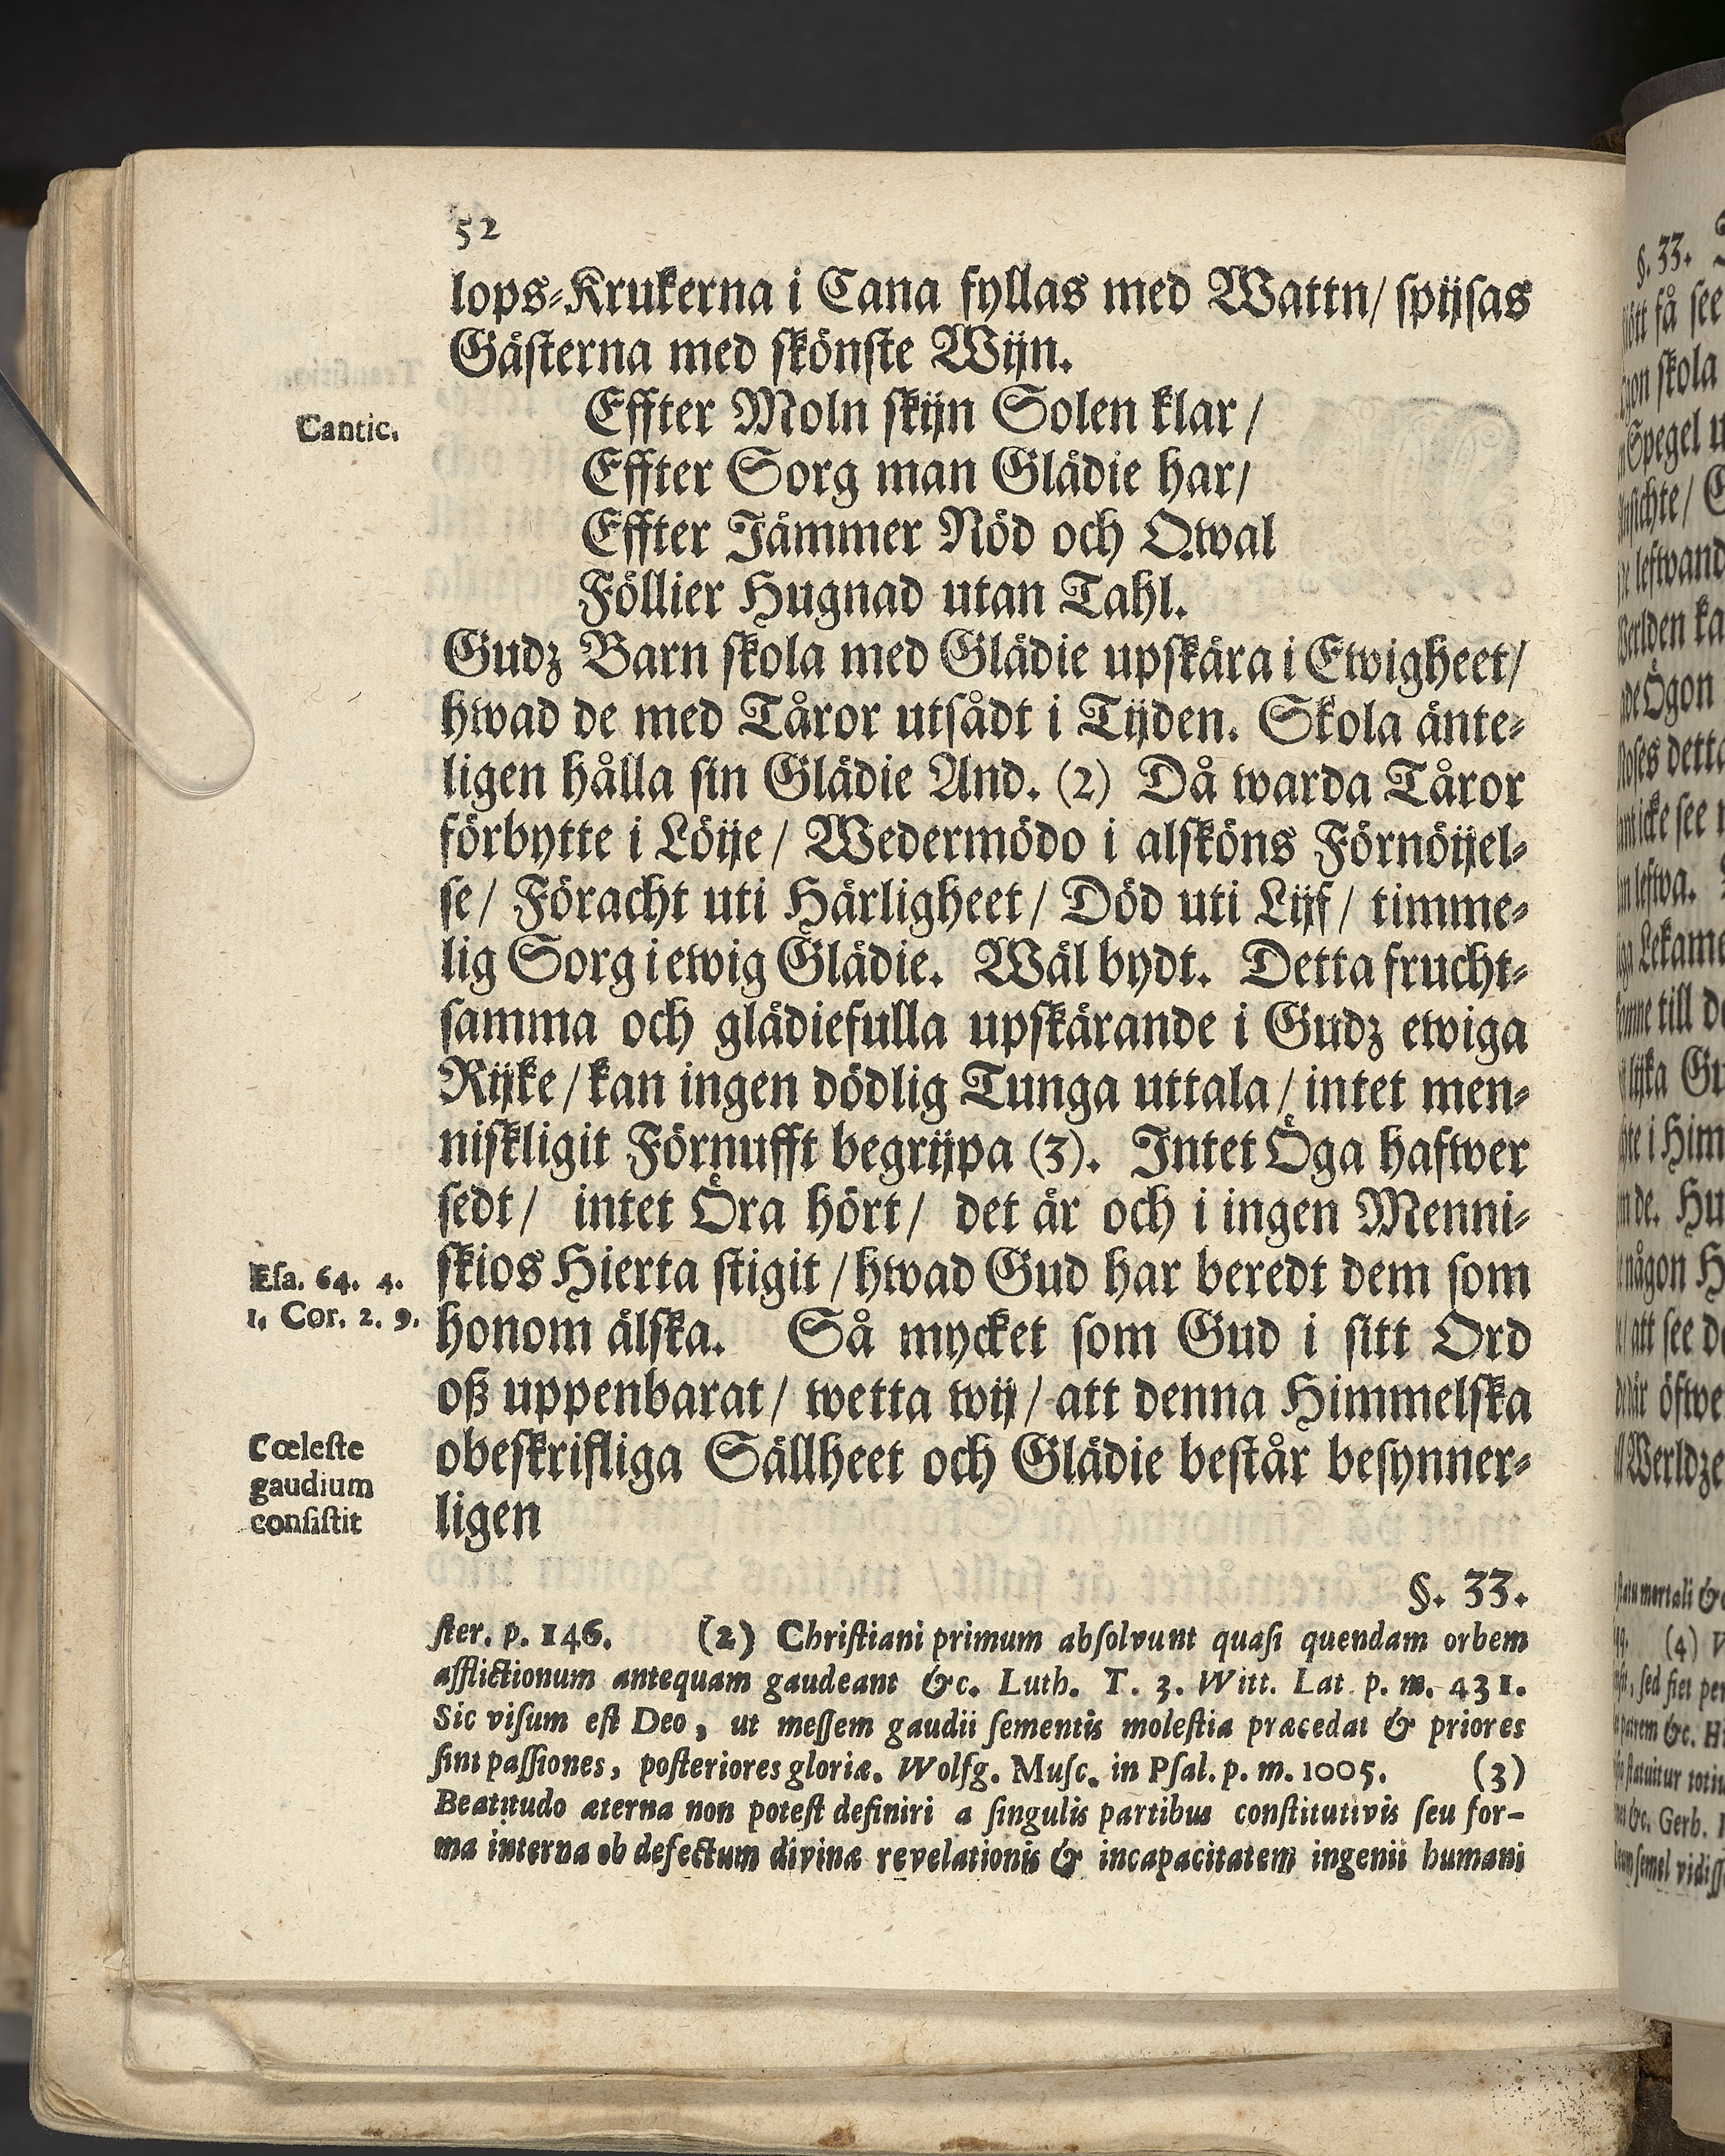 52
lops-Krukerna i Cana fyllas med Wattn/ spijsas
Gästerna med skönste Wijn.
Cantic.
Effter Moln skijn Solen klar /
Effter Sorg man Glädie har/
Effter Jämmer Nöd och Qwal
Föllier Hugnad utan Tahl.
Gudz Barn skola med Glädie upskära i Ewigheet/
hwad de med Tåror utsådt i Tijden. Skola änte-
ligen hålla sin Glädie And. (2) Då warda Tåror
förbytte i Löije / Wedermödo i alsköns Förnöijel-
se / Föracht uti Härligheet / Död uti Lijf / timme-
lig Sorg i ewig Glädie. Wäl bydt. Detta frucht-
samma och glädiefulla upskärande i Gudz ewiga
Rijke / kan ingen dödlig Tunga uttala / intet men-
niskligit Förnufft begrijpa (3). Intet Öga hafwer
sedt / intet Öra hört / det är och i ingen Menni-
skios Hierta stigit / hwad Gud har beredt dem som
honom älska. Så mycket som Gud i sitt Ord
oß uppenbarat / wetta wij / att denna Himmelska
obeskrifliga Sällheet och Glädie består besynner-
ligen
Esa. 64. 4.
1. Cor. 2. 9.
Cœleste
gaudium
consistit
§. 33.
ster. p. 146. (2) Christiani primum absolvunt quasi quendam orbem
afflictionum antequam gaudeant &c. Luth. T. 3. Witt. Lat. p. m. 431.
Sic visum est Deo, ut messem gaudii sementis molestia præcedat & priores
sint passiones, posteriores gloriæ. Wolfg. Musc. in Psal. p. m. 1005. (3)
Beatitudo æterna non potest definiri a singulis partibus constitutivis seu for-
ma interna ob defectum divinæ revelationis & incapacitatem ingenii humani
§. 33.
få see
skola
Spegel
Ögon
detta
icke see
Lekame
till
Gu
i Him
de. Hu
någon
att see
öfwe
mortali &
(4)
sed fiet per
&c. Gerb.
semel